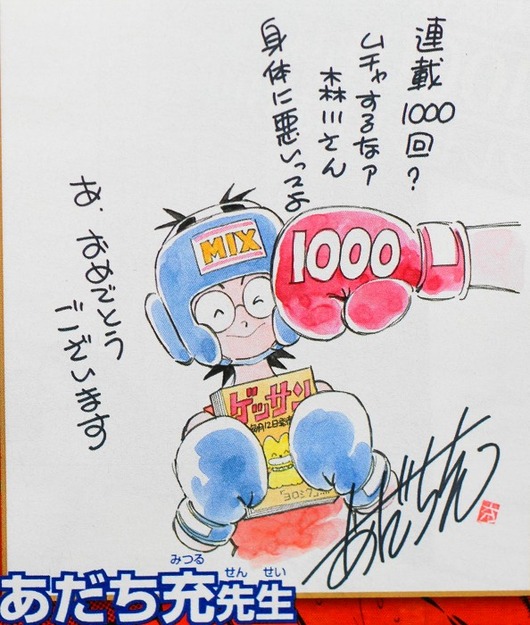 連載1000回？
ムチャするなァ
森川さん
身体に悪いっスよ
あ、おめでとう
ございます
MIX
1000
ゲッサン
毎月12日発売
あだち充
みつる
せんせい
あだち充先生